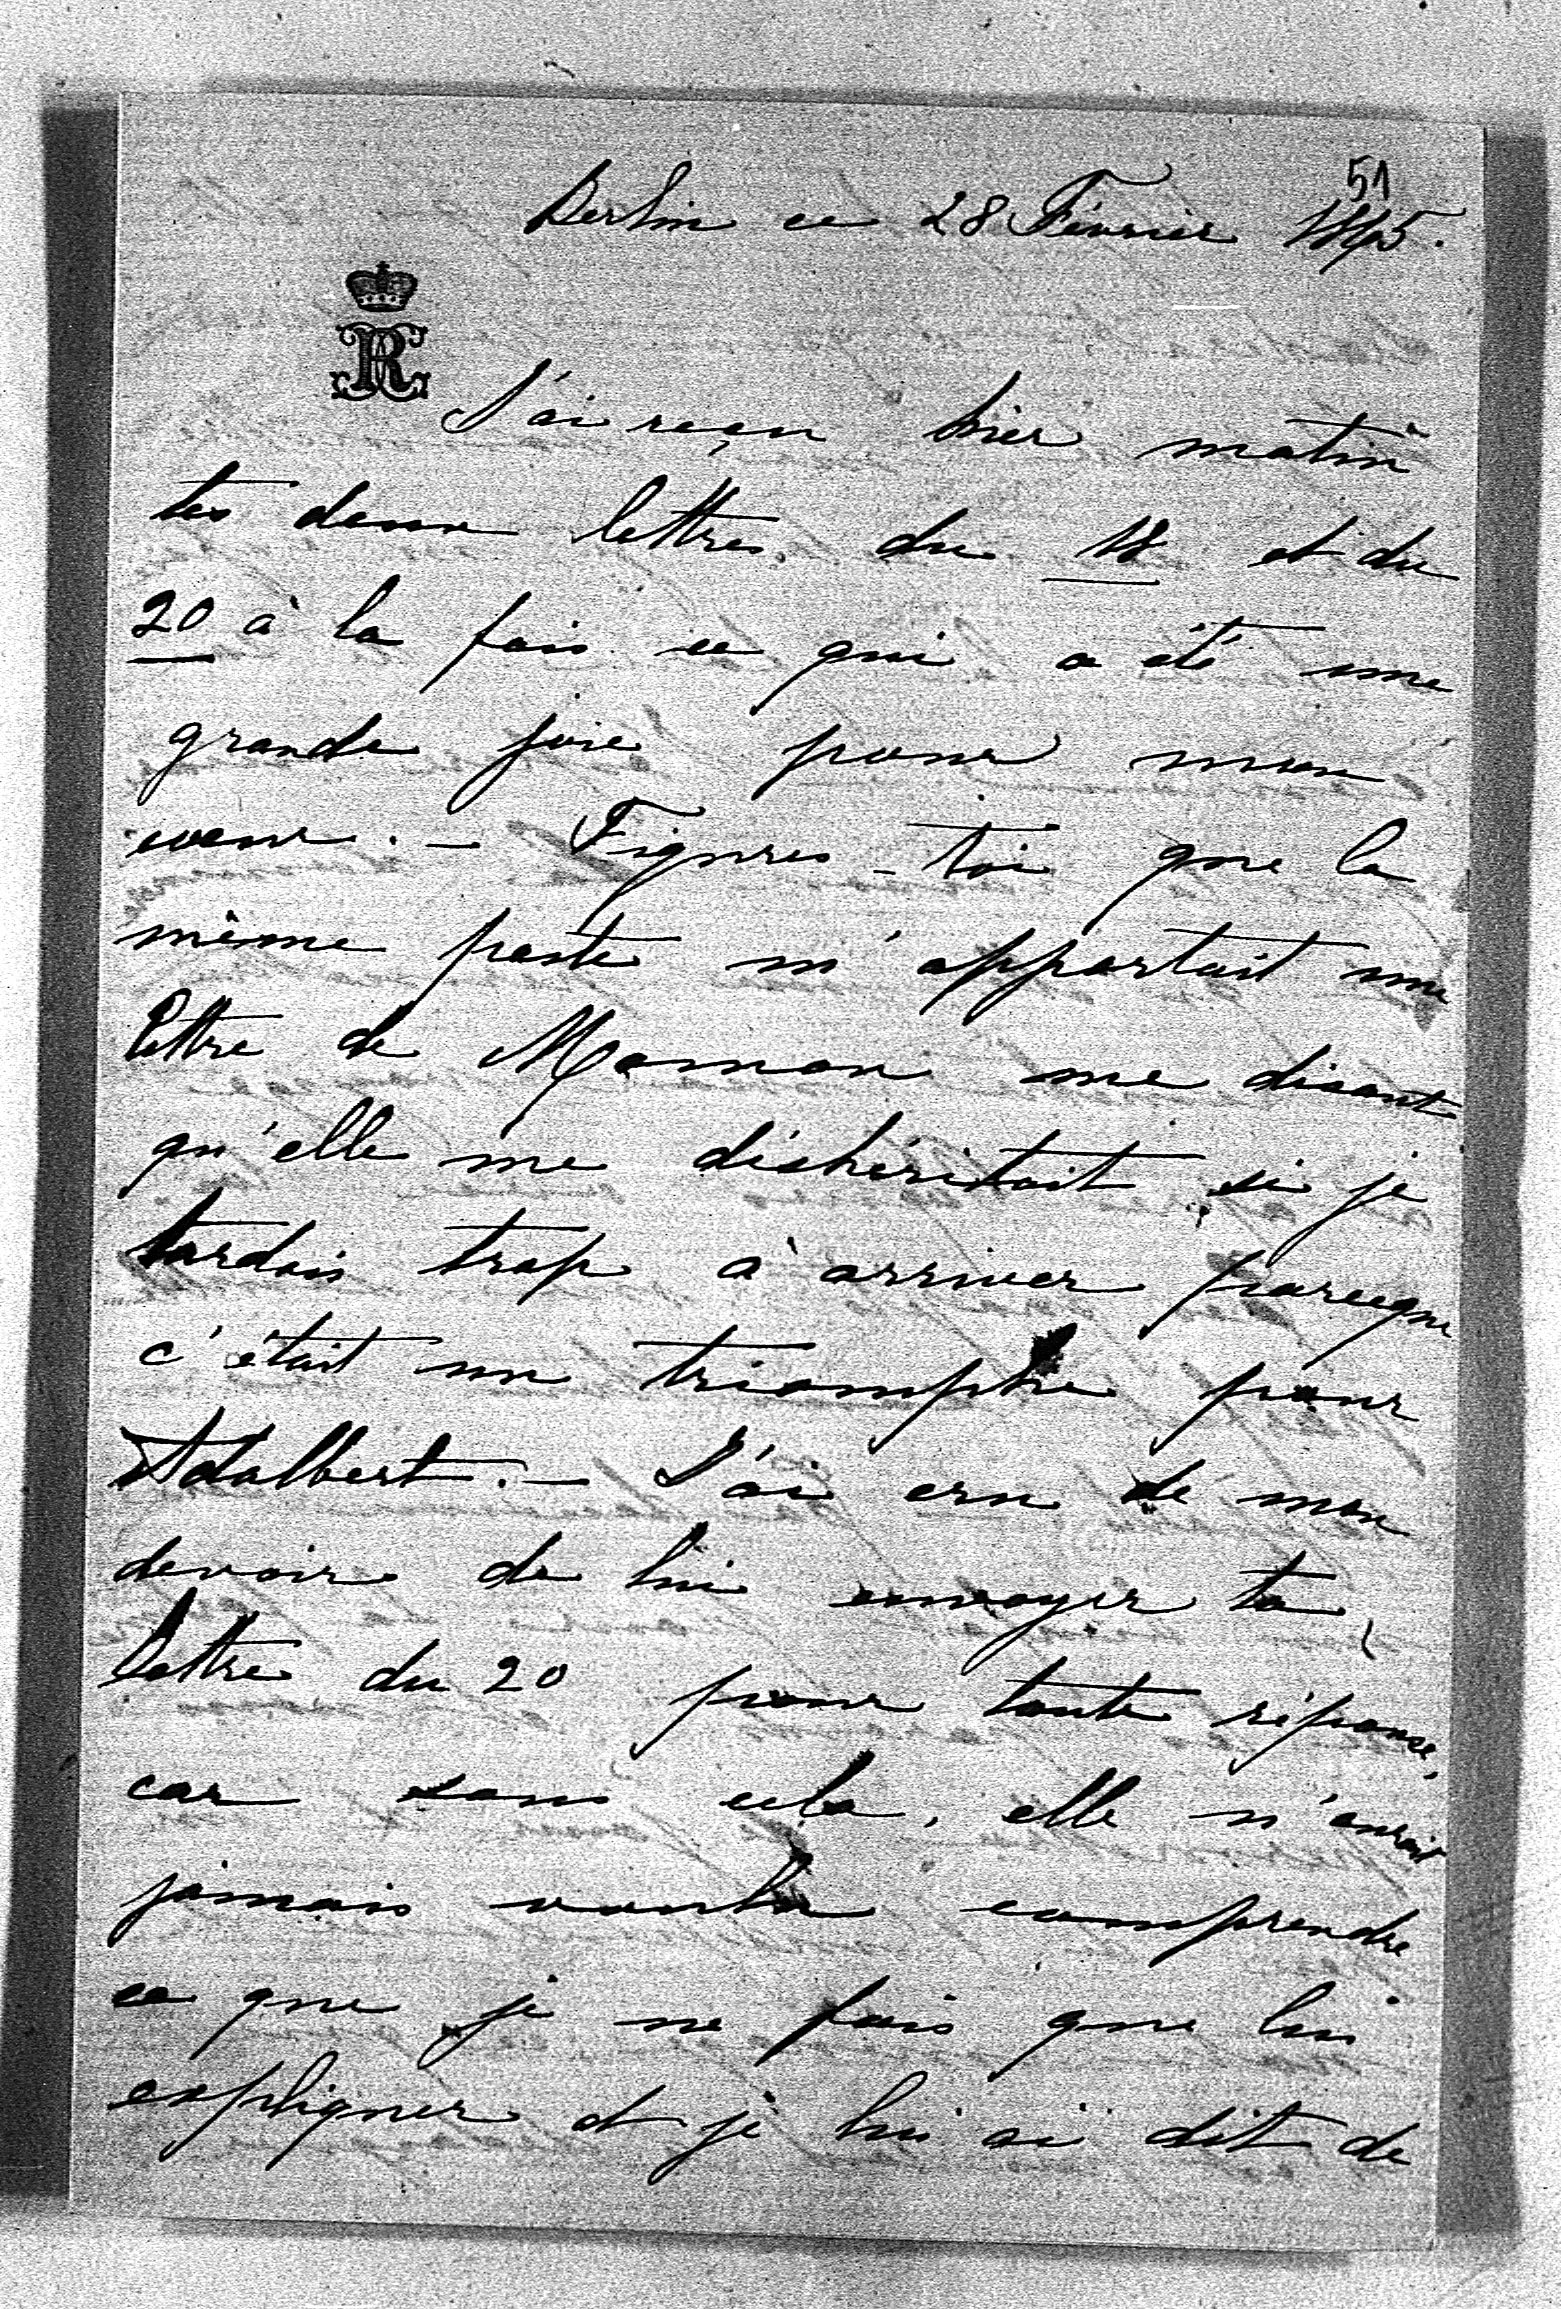 51
Berlin ce 28 Février
R
J'ai reçu hier matin
tes deux lettres du 18 et du
20 à la fois ce qui a été une
grande joie pour mon
coeur. – Figures-toi que la
même poste m'apportait une
lettre de Maman me disant
qu'elle me déshéritait si je
tardais trop à arriver parceque
c'était un triomphe pour
Adalbert. – J'ai cru de mon
devoir de lui envoyer ta
lettre du 20 pour toute réponse,
car sans cela, elle n'aurait
jamais voulu comprendre
ce que je ne fais que lui
expliquer et je lui ai dit de